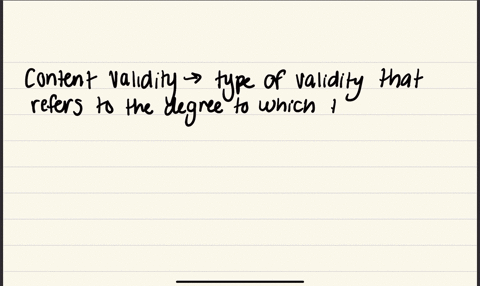 Content validity → type of validity that
refers to the degree to which